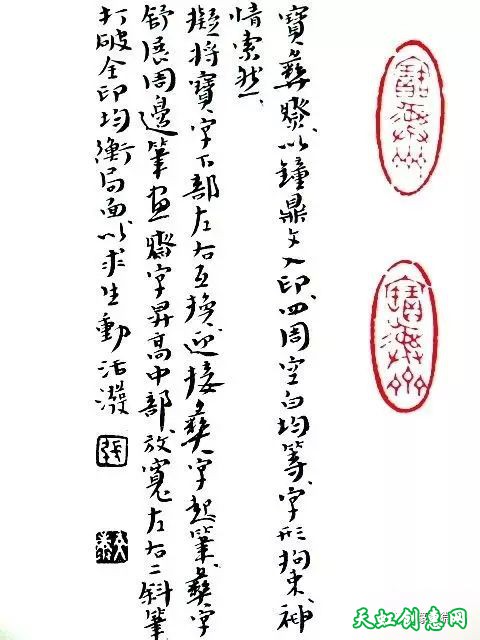 寶彝齋以鐘鼎文入印四周空白均等字形拘束神
情索然
擬將寶字下部左右互換迎接彝字起筆彝字
舒展周邊筆畫齋字昇高中部放寬左右二斜筆
打破全印均衡局面以求生動活潑
天虹创意网